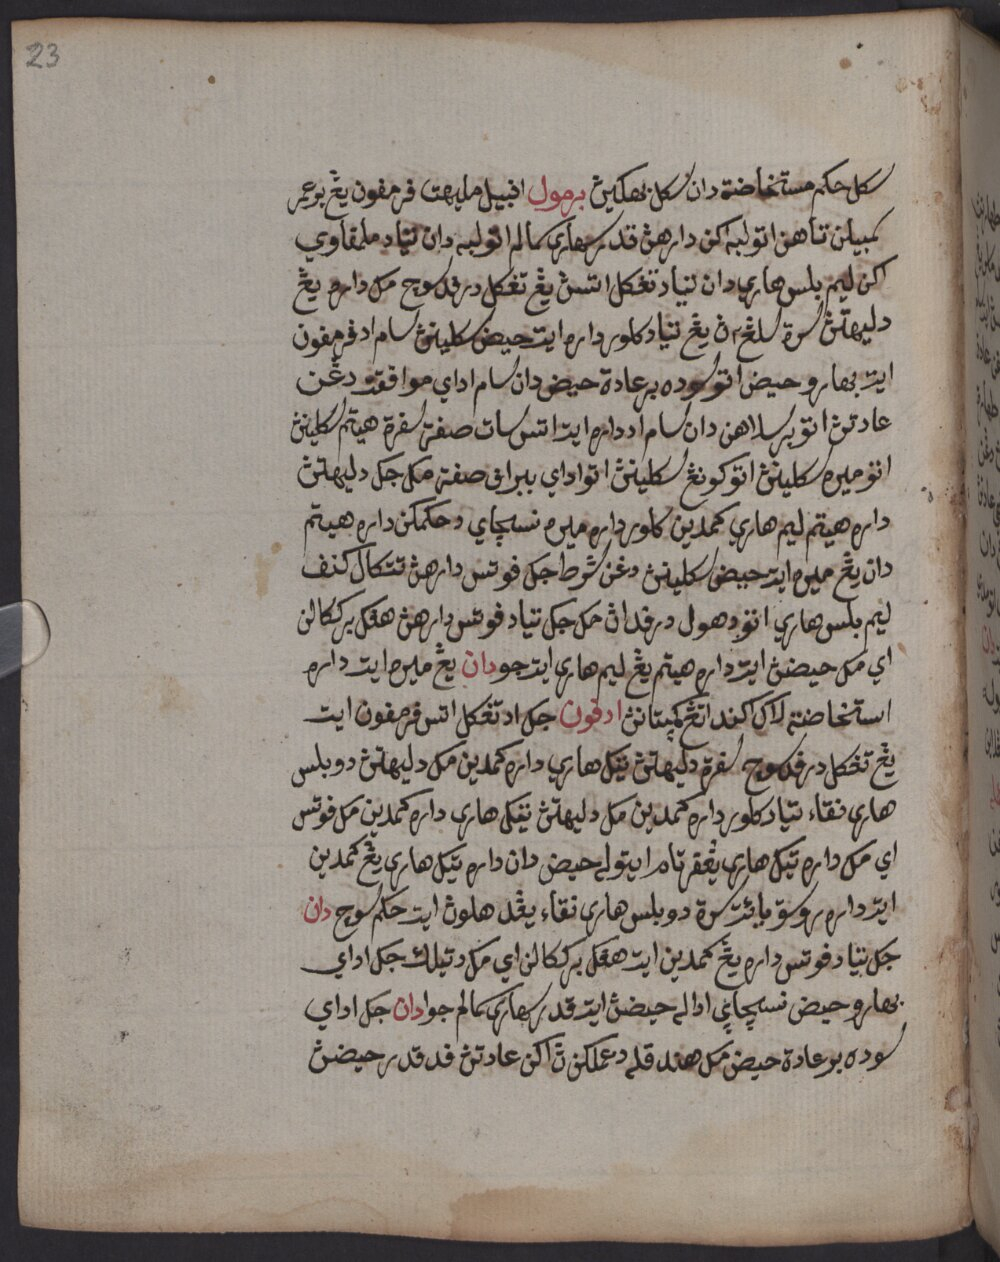 23
سکل حکم مستحاضة دان سکل بهݢين برمول افبيل مليهت فرمفون يڠ برعمر
سمبيلن تاهن اتو لبه اکن دارهڽ قدر سهاري سمالم اتو لبه دان تياد ملمفاوي
اکن ليم بلس هاري دان تياد تڠکل اتسڽ يڠ تڠکل درفد سوچ مک داره يڠ
دليهتڽ سرة سلڠ٢ن يڠ تياد کلور داره ايت حيض سکلينڽ سام اد فرمفون
ايت بهارو حيض اتو سوده برعادة حيض دان سام اداي موافقة دڠن
عادتڽ اتو برسلاهن دان سام اد داره ايت اتس سات صفة سفرة هيتم سکلينڽ
اتو ميره سکلينڽ اتو کونڠ سکلينڽ اتو اداي ببراف صفة مک جک دليهتڽ
داره هيتم ليم هاري کمدين کلور داره ميره نسچاي دحکمکن داره هيتم
دان يڠ ميره ايت حيض سکلينڽ دڠن شرط جک فوتس دارهڽ تتکال ݢنف
ليم بلس هاري اتو دهول درفدان مک جک تياد فوتس دارهڽ هڠک برککالن
اي مک حيضڽ ايت داره هيتم يڠ ليم هاري ايت جو دان يڠ ميره ايت داره
استحاضة لاݢ اکند اتڠ کپتانڽ ادفون جک اد تڠکل اتس فرمفون ايت
يڠ تڠکل درفد سوچ سفرة دليهتڽ تيݢ هاري داره کمدين مک دليهتڽ دوبلس
هاري نقاء تياد کلور داره کمدين مک دليهتڽ تيݢ هاري داره کمدين مک فوتس
اي مک داره تيݢ هاري يڠ فرتام ايتوله حيض دان داره تيݢ هاري يڠ کمدين
ايت داره روسق بائت سرة دوبلس هاري نقاء يڠد هلوڽ ايت حکم سوچ دان
جک تياد فوتس داره يڠ کمدين ايت هڠک برککالن اي مک دتيلك جک اداي
بهارو حيض نسچاي اداله حيضڽ ايت قدر سهاري سمالم جوا دان جک اداي
سوده برعادة حيض مک هندقله دعملکنڽ اکن عادتڽ فد قدر حيضڽ